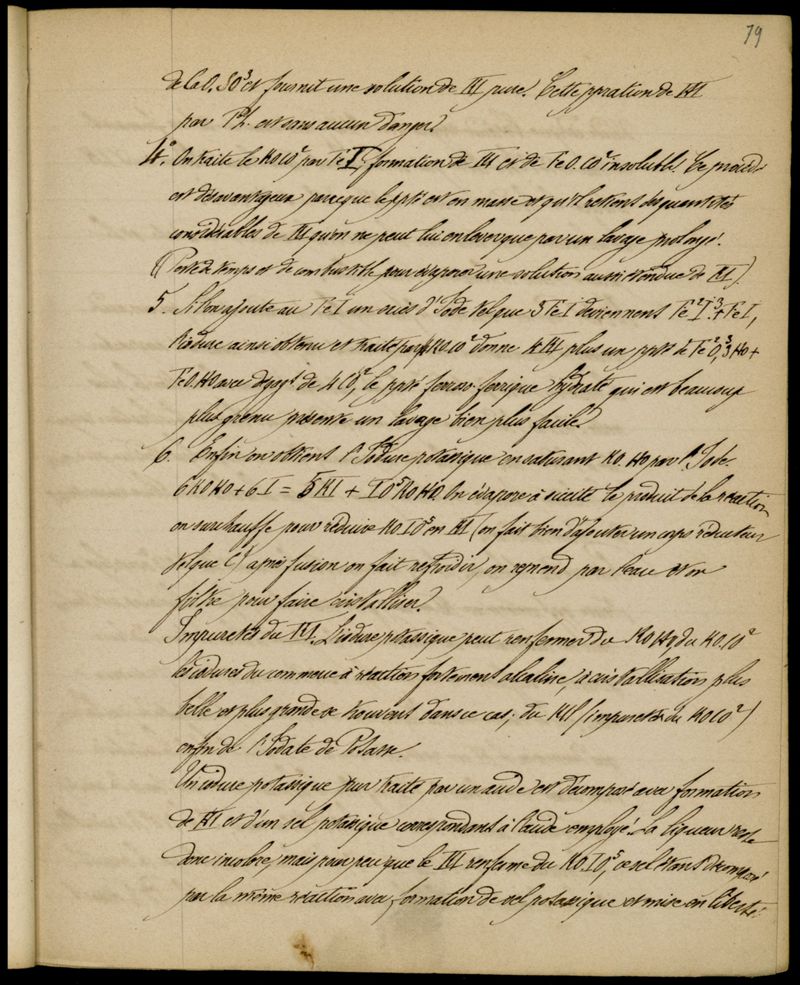 79
de CaO, SO³ et fournit une solution de KI pure. Cette pration de HI
par Ph. est sans aucun danger.
4° On traite le KO CO² par Fe I, formation de KI et de FeO. CO² insoluble. Ce procédé
est désavantageux parce que le ppté est en masse et qu'il retient des quantités
considérables de KI qu'on ne peut lui enlever que par un lavage prolongé.
(Perte de temps et de combustible pour évaporer une solution aussi étendue de KI).
5. Si l'on ajoute au FeI un excès d'Iode tel que 3 FeI deviennent Fe²I³ + FeI,
l'iodure ainsi obtenu et traité par KO CO² donne 4 KI plus un ppté de Fe²O³, 3 HO +
FeO. HO avec dgagt de 4 CO², le ppté ferroso ferrique hydraté qui est beaucoup
plus grenu présente un lavage bien plus facile.
6. Enfin on obtient l'Iodure potassique en saturant KO. HO par l'Iode.
6 KO HO + 6 I = 5 KI + IO⁵ KO HO. On évapore à siccité le produit de la réaction
on surchauffe pour réduire KO IO⁵ en KI (on fait bien d'ajouter un corps réducteur
tel que C) après fusion on fait refroidir, on reprend par l'eau et on
filtre pour faire cristalliser.
Impuretés du KI. L'iodure potassique peut renfermer du KO HO, du KO. CO²
les iodures du commerce à réaction fortement alcaline, à cristallisation plus
belle et plus grande se trouvent dans ce cas; du KCl (impureté du KO CO²)
enfin de l'Iodate de Potasse.
Un iodure potassique pur traité par un acide est décomposé avec formation
de HI et d'un sel potassique correspondant à l'acide employé. La liqueur reste
donc incolore, mais pour peu que le KI renferme du KO. IO⁵, ce sel étant décomposé
par la même réaction avec formation de sel potassique et mise en liberté